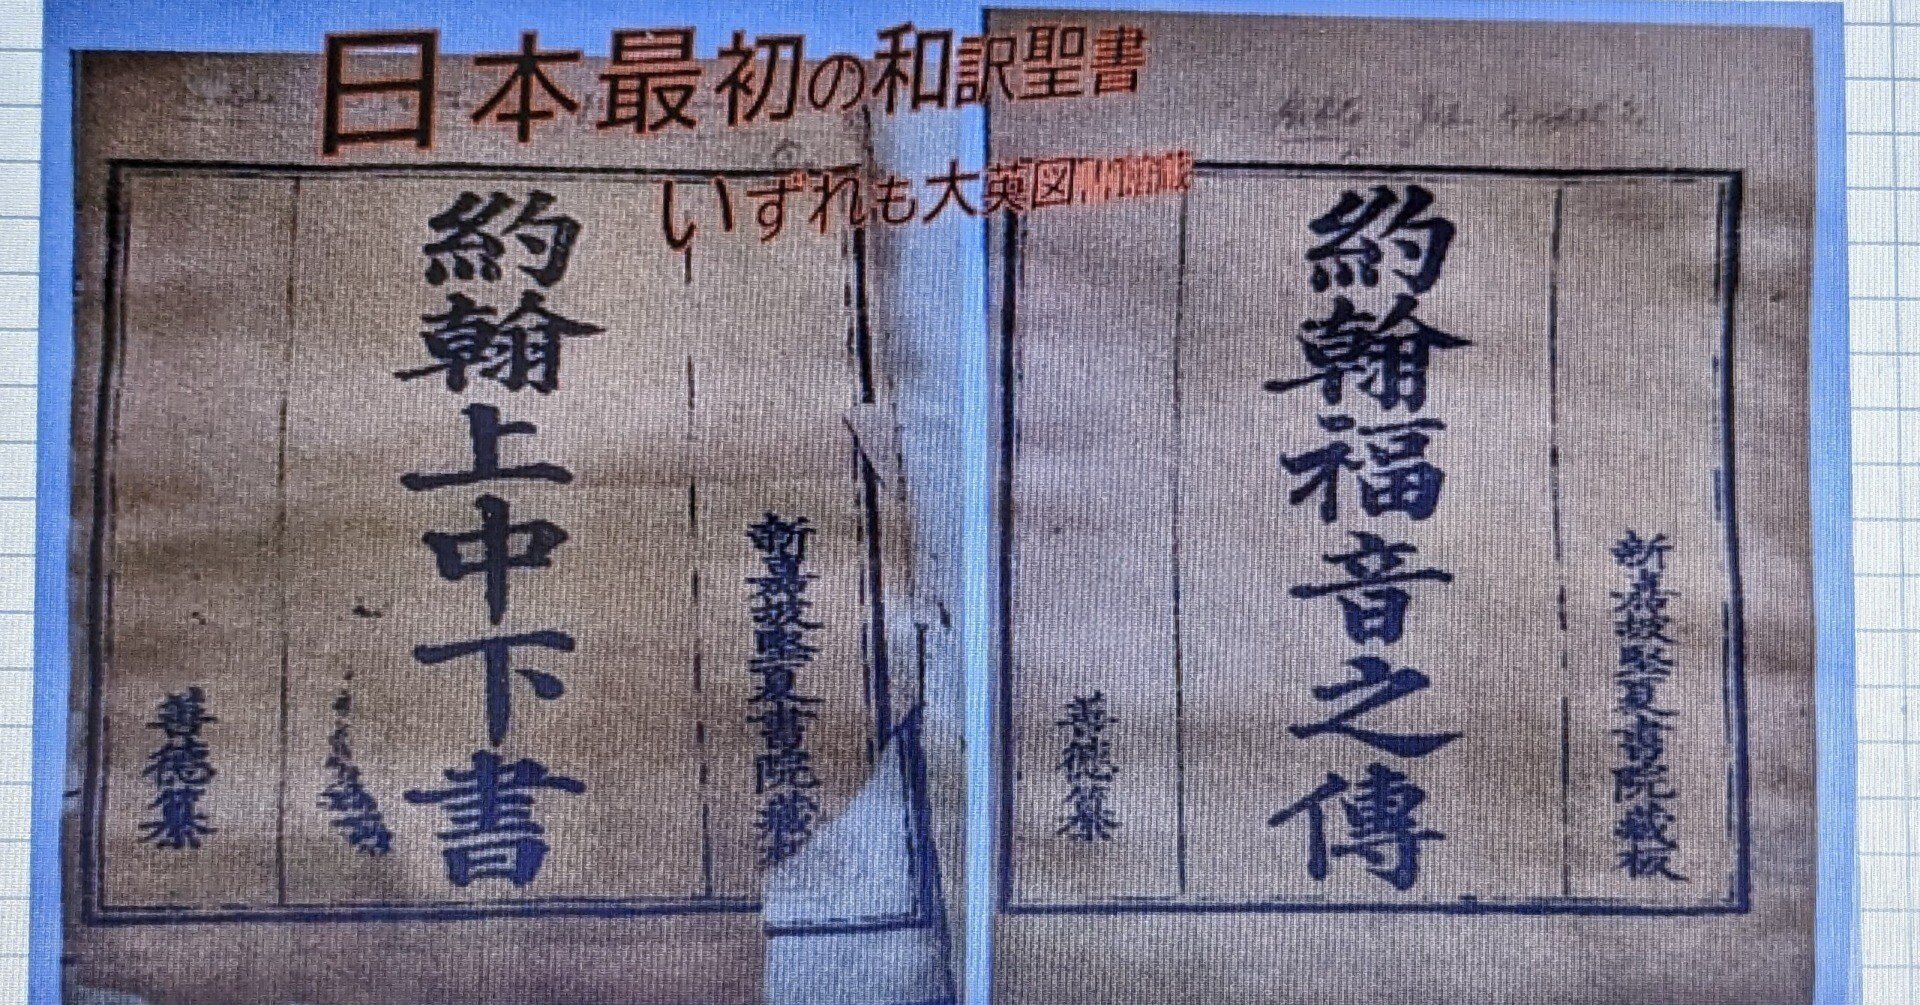 日本最初の和訳聖書
いずれも大英図書館蔵
新嘉坡堅夏書院藏板
約翰福音之傳
善徳纂
新嘉坡堅夏書院藏
約翰上中下書
善徳纂